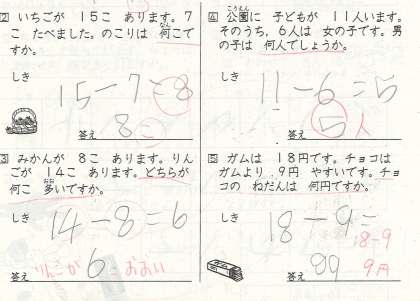 ② いちごが 15こ あります。7
こ たべました。のこりは 何こで
すか。
しき
15-7=8
答え
8こ
③ みかんが 8こ あります。りん
ごが 14こ あります。どちらが
何こ 多いですか。
しき
14-8=6
答え
りんごが6こおおい
④ 公園に 子どもが 11人います。
そのうち，6人は 女の子です。男
の子は 何人でしょうか。
しき
11-6=5
答え
5人
⑤ ガムは 18円です。チョコは
ガムより 9円 やすいです。チョ
コの ねだんは 何円ですか。
しき
18-9=
18-9
答え
9円